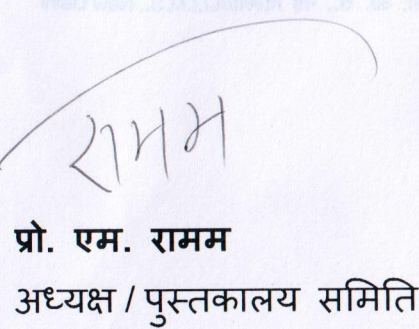 रामम
प्रो. एम. रामम
अध्यक्ष / पुस्तकालय समिति